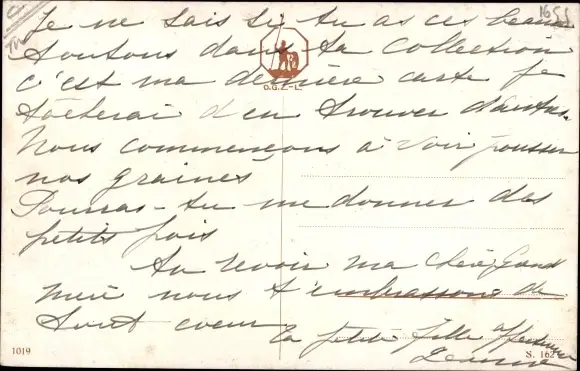 1651
Je ne sais si tu as ces beaux
toutous dans ta collection
c'est ma dernière carte je
tâcherai d'en trouver d'autres.
O.G.Z.-L.
Nous commençons à voir pousser
nos graines
Pourras-tu me donner des
petits pois
Au revoir ma chère Grand
mère nous t'embrassons de
tout coeur
ta petite fille affectueuse
Jeanne
1019
S. 162